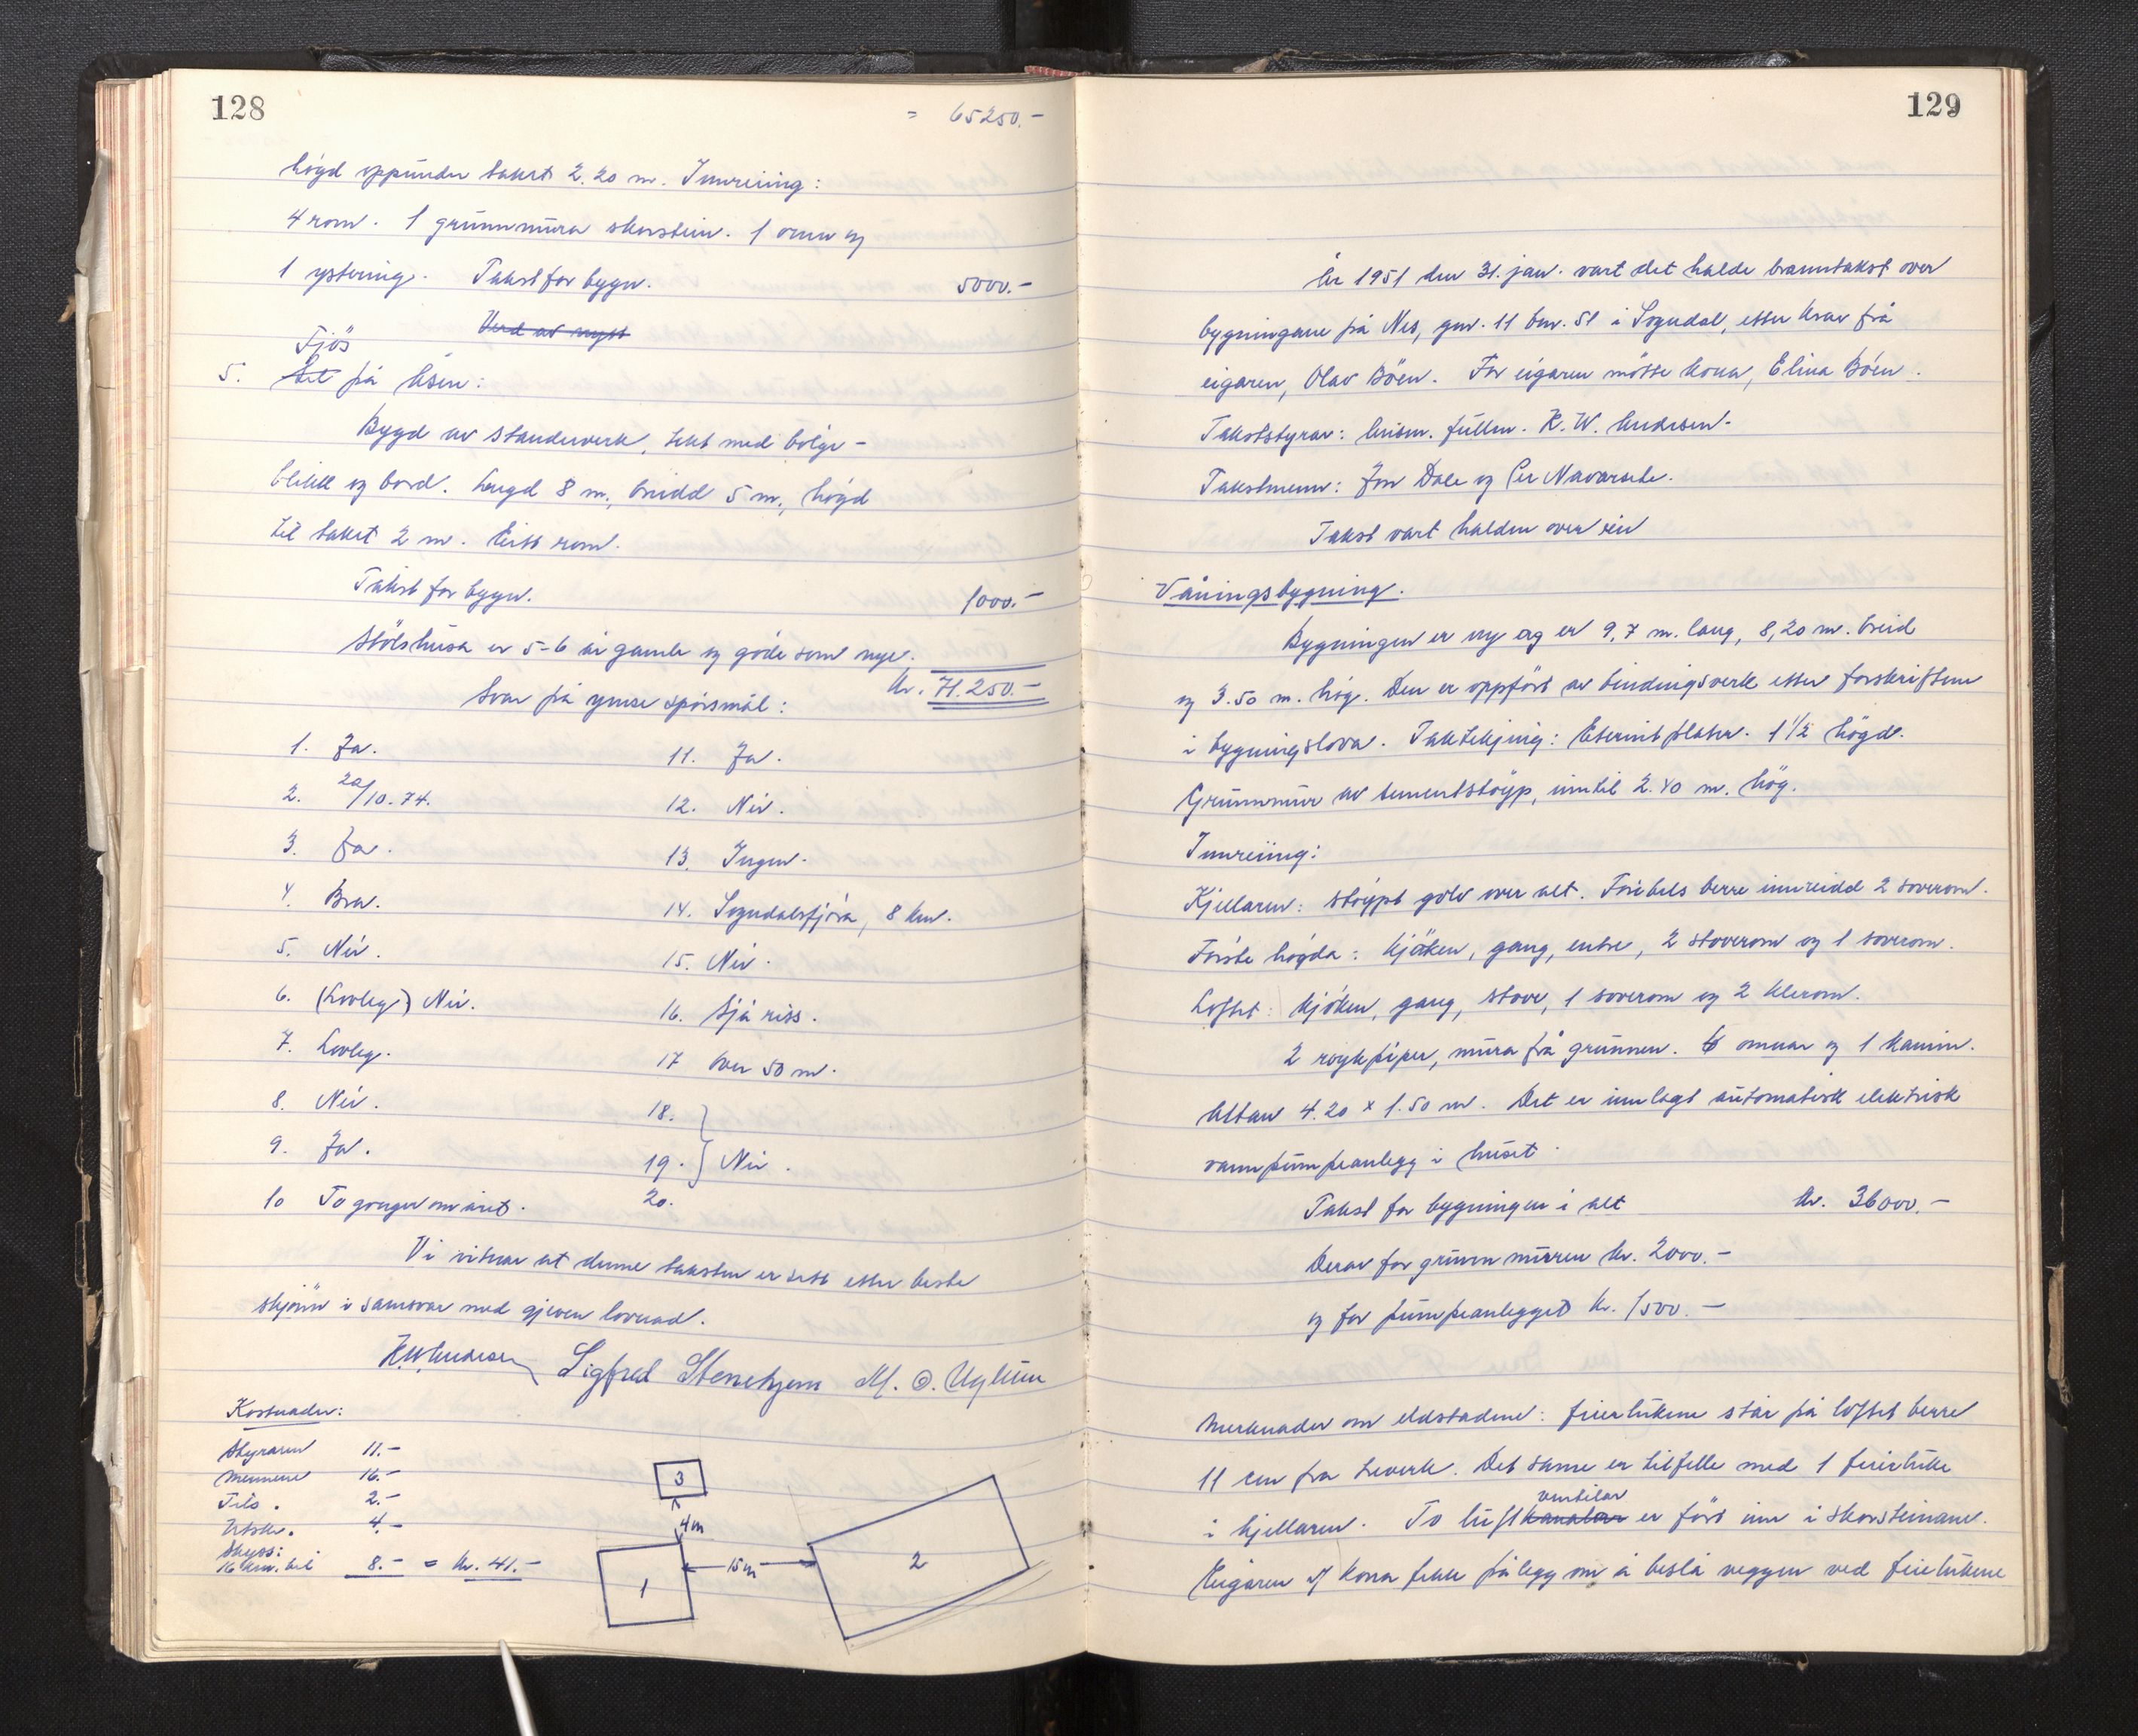 128
= 65250.-
högd oppunder taket 2.20 m. Innreiing:
4 rom. 1 grunnmura skorstein. 1 omn og
1 ystering. Takst for bygn. 5000.-
Verd av nytt
Fjös
5. Sel på åsen:
Bygd av standerverk, tekt med bölgje-
blikk og bord. Lengd 8 m., breidd 5 m., högd
til taket 2 m. Eitt rom.
Takst for bygn. 1000.-
Stölshusa er 5-6 år gamle og gode som nye.
kr. 71.250.-
Svar på ymse spörsmål:
1. Ja.
2. 20/10.74.
3. Ja.
4. Bra.
5. Nei.
6. (Lovleg) Nei.
7. Lovleg.
8. Nei.
9. Ja.
10 To gonger om året.
11. Ja.
12. Nei.
13. Ingen.
14. Sogndalsfjöra, 8 km.
15. Nei.
16. Sjå riss.
17 Over 50 m.
18.
19. Nei.
20.
Vi vitnar at denne taksten er sett etter beste
skjönn i samsvar med gjeven lovnad.
R.W. Andresen Sigfred Stenehjem M. O. Uglum
Kostnader:
Styraren 11.-
Mennene 16.-
Tils. 2.-
Utskr. 4.-
Skyss:
16 km. bil 8.- = kr. 41.-
3
4m
1
15m
2
129
År 1951 den 31. jan. vart det halde branntakst over
bygningane på Nes, gnr. 11 bnr. 51 i Sogndal, etter krav frå
eigaren, Olav Böen. For eigaren mötte kona, Elina Böen.
Takststyrar: lensm. fullm. R. W. Andresen.
Takstmenn: Jon Dale og Per Navarsete.
Takst vart halden over ein
Våningsbygning.
Bygningen er ny og er 9,7 m. lang, 8,20 m. breid
og 3.50 m. hög. Den er oppfört av bindingsverk etter forskriftene
i bygningslova. Taktekjing: Eternitplater. 1 1/2 högd.
Grunnmur av sementstöyp, inntil 2.40 m. hög.
Innreiing:
Kjellaren: stöypt golv over alt. Förebels berre innreidd 2 soverom.
Förste högda: Kjöken, gang, entre, 2 stoverom og 1 soverom.
Loftet: Kjöken, gang, stove, 1 soverom og 2 klerom.
2 röykpiper, mura frå grunnen. 6 omnar og 1 kamin.
Altan 4.20 x 1.50 m. Det er innlagt automatisk elektrisk
vannpumpeanlegg i huset.
Takst for bygningen i alt kr. 36000.-
Derav for grunnmuren kr. 2000.-
og for pumpeanlegget kr. 1500.-
Merknader om eldstadene: Feierlukene står på loftet berre
11 cm fra treverk. Det same er tilfelle med 1 feierluke
ventilar
i kjellaren. To luftkanalar er fört inn i skorsteinane.
Eigaren v/ kona fekk pålegg om å beslå veggen ved feielukene